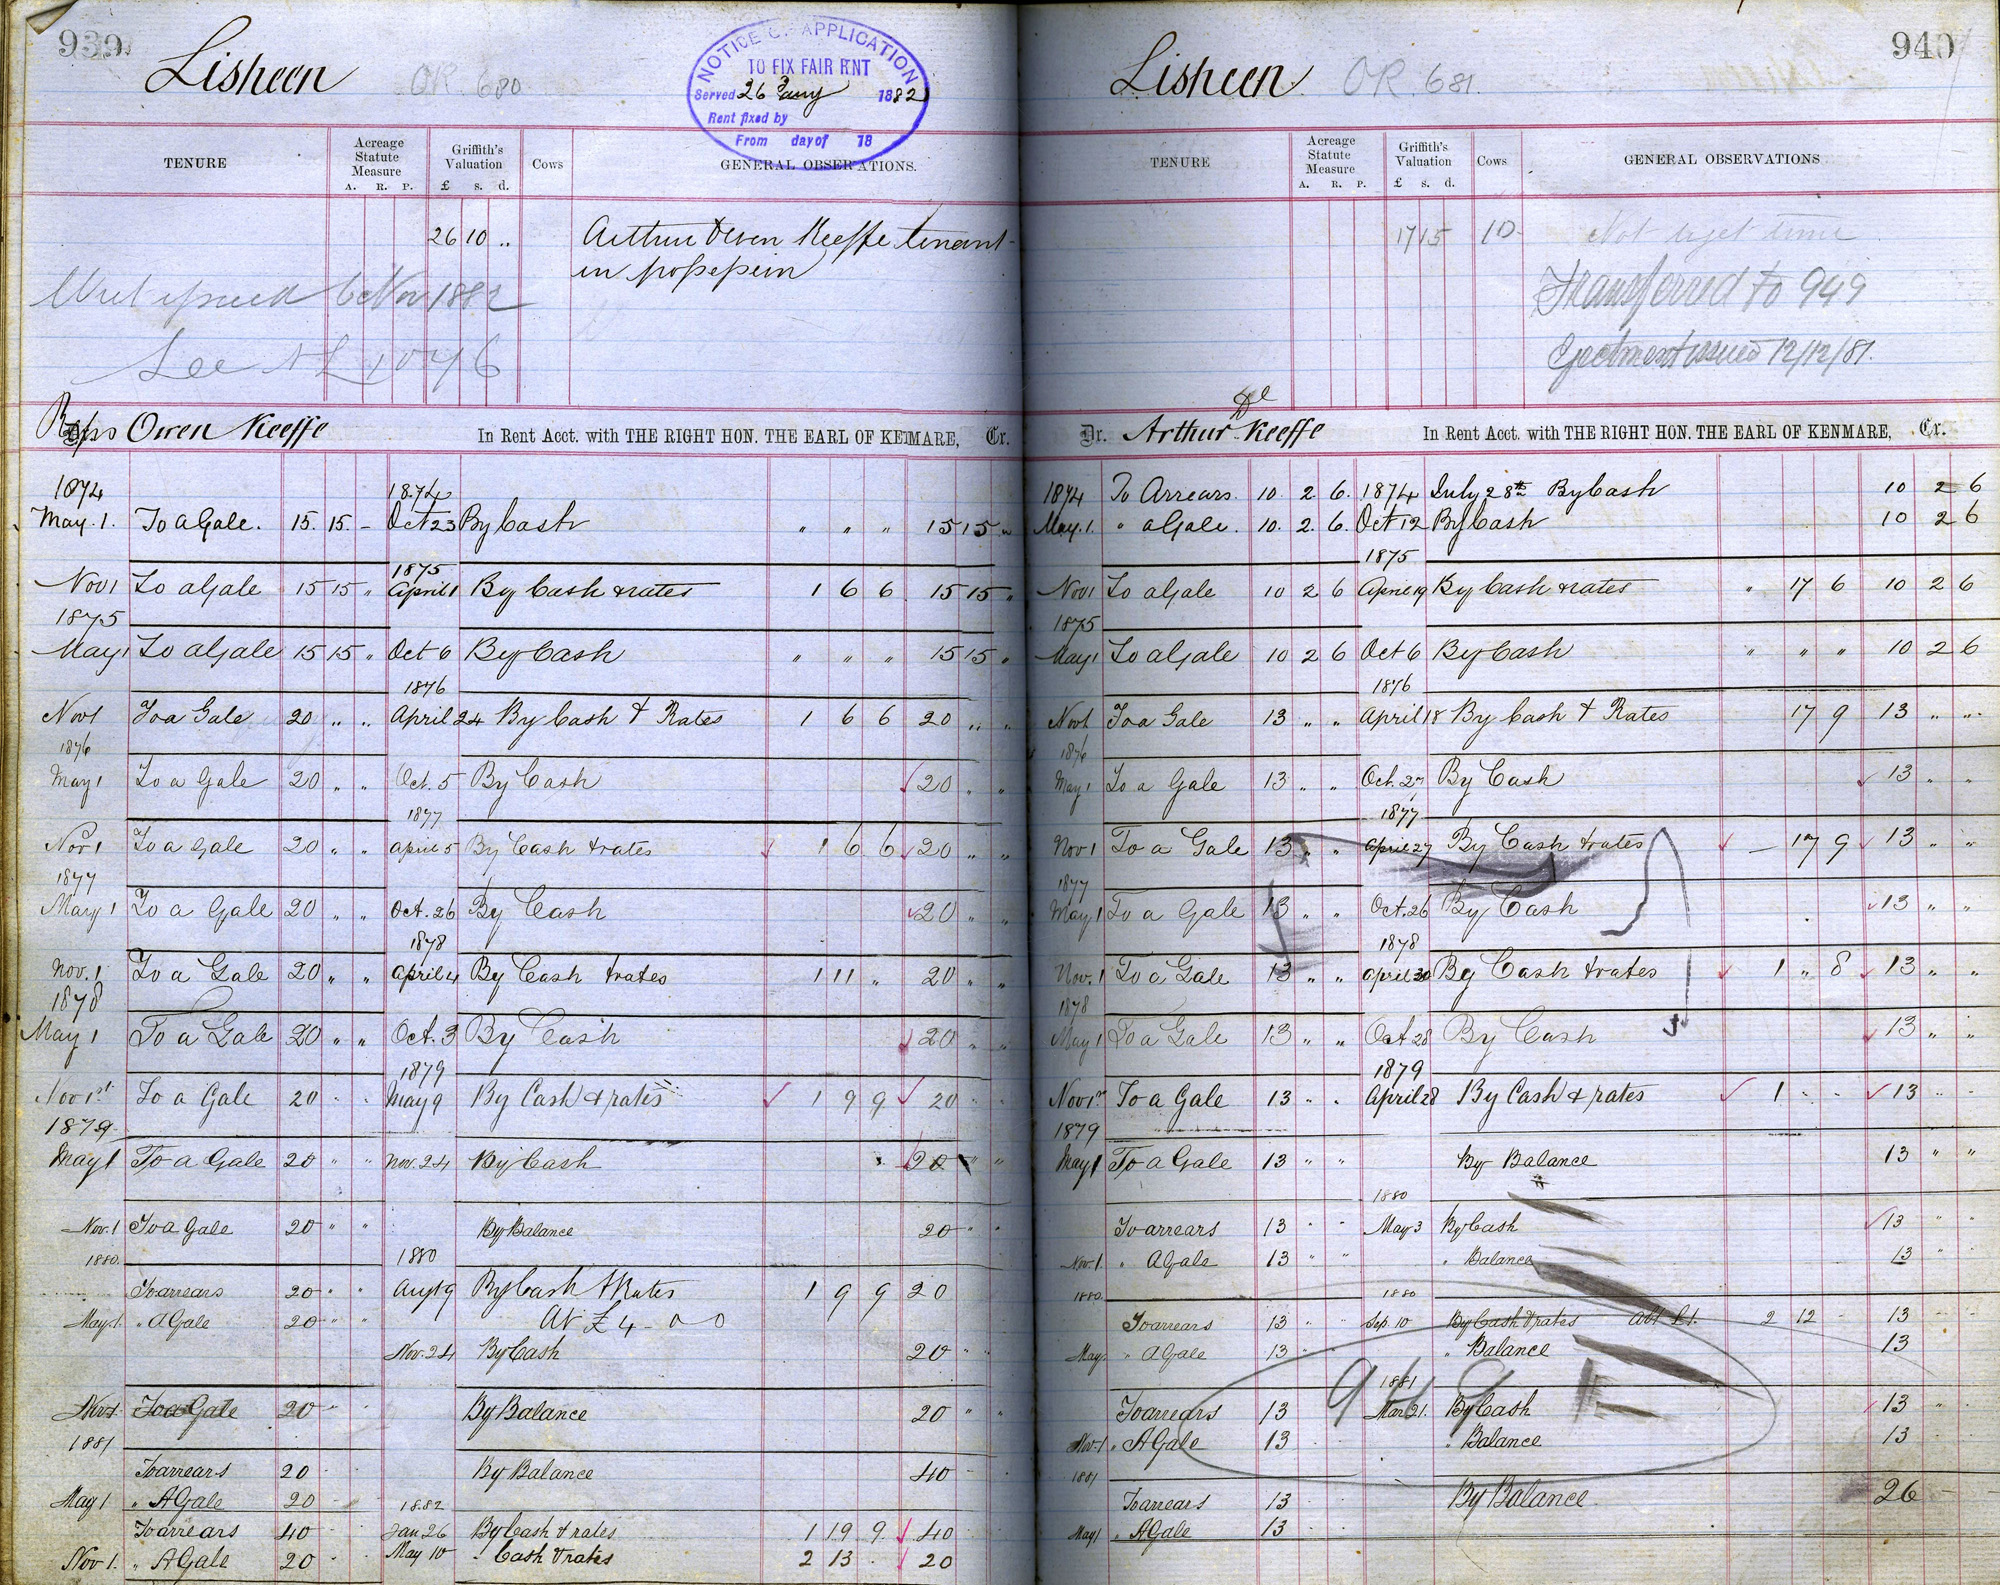 939
Lisheen OR 680
NOTICE OF APPLICATION
TO FIX FAIR RENT
Served 26 Jany 1882
Rent fixed by
From day of 18
TENURE Acreage Statute Measure A. R. P. Griffith's Valuation £ s. d. Cows GENERAL OBSERVATIONS.
26 10 ,, Arthur Owen Keeffe tenant
in possession
6 Nov 1882
See 1046
Reps Owen Keeffe In Rent Acct. with THE RIGHT HON. THE EARL OF KENMARE, Cr.
1874 1874
May. 1. To a Gale. 15. 15. - Oct 23 By Cash " " " 15 15 "
1875
Nov 1 To a Gale 15 15 " April 1 By Cash & rates 1 6 6 15 15 "
1875
May 1 To a Gale 15 15 " Oct 6 By Cash " " " 15 15 "
1876
Nov 1 To a Gale 20 " " April 24 By Cash & Rates 1 6 6 20 " "
1876
May 1 To a Gale 20 " " Oct. 5 By Cash 20 " "
1877
Nov 1 To a Gale 20 " " April 5 By Cash & rates 1 6 6 20 " "
1877
May 1 To a Gale 20 " " Oct. 26 By Cash 20 " "
1878
Nov. 1 To a Gale 20 " " April 4 By Cash & rates 1 11 " 20 " "
1878
May 1 To a Gale 20 " " Oct. 3 By Cash 20 " "
1879
Nov 1st To a Gale 20 " " May 9 By Cash & rates 1 9 9 20 " "
1879
May 1 To a Gale 20 " " Nov. 24 By Cash 20 " "
Nov. 1 To a Gale 20 " " By Balance 20 " "
1880. 1880
To arrears 20 " " Aug 19 By Cash & Rates 1 9 9 20
May 1. " A Gale 20 " " At £4 - 0 0
Nov. 24 By Cash 20 " "
Nov 1 To a Gale 20 " " By Balance 20 " "
1881
To arrears 20 By Balance 40
May 1 " A Gale 20 1882
To arrears 40 Jan 26 By Cash & rates 1 19 9 40
Nov 1. " A Gale 20 May 10 " Cash & rates 2 13 . 20
940
Lisheen OR 681.
TENURE Acreage Statute Measure A. R. P. Griffith's Valuation £ s. d. Cows GENERAL OBSERVATIONS
17 15 10 Not to get time
Transferred to 949
Ejectment issued 12/12/81.
Dr. Arthur Keeffe In Rent Acct. with THE RIGHT HON. THE EARL OF KENMARE, Cr.
1874 To Arrears. 10. 2. 6. 1874 July 28th By Cash 10 2 6
May. 1. " a Gale. 10. 2. 6. Oct 12 By Cash 10 2 6
1875
Nov 1 To a Gale 10 2 6 April 19 By Cash & rates " 17 6 10 2 6
1875
May 1 To a Gale 10 2 6 Oct 6 By Cash " " " 10 2 6
1876
Nov 1 To a Gale 13 " " April 18 By Cash & Rates 17 9 13 " "
1876
May 1 To a Gale 13 " " Oct. 27 By Cash 13 " "
1877
Nov 1 To a Gale 13 " " April 27 By Cash & rates - 17 9 13 " "
1877
May 1 To a Gale 13 " " Oct. 26 By Cash 13 " "
1878
Nov. 1 To a Gale 13 " " April 30 By Cash & rates 1 " 8 13 " "
1878
May 1 To a Gale 13 " " Oct 28 By Cash 13 " "
1879
Nov 1st To a Gale 13 " " April 28 By Cash & rates 1 - - 13
1879
May 1 To a Gale 13 " " By Balance 13 " "
1880
To arrears 13 " " May 3 By Cash 13 " "
Nov. 1. " A Gale 13 " " " Balance 13 " "
1880. 1880
To arrears 13 " " Sep. 10 By Cash & rates Abt £1. 2 12 13
May " A Gale 13 " " " Balance 13
949
1881
To arrears 13 Mar 21. By Cash 13
Nov. 1 " A Gale 13 " Balance 13
1881
To arrears 13 By Balance 26
May 1 " A Gale 13